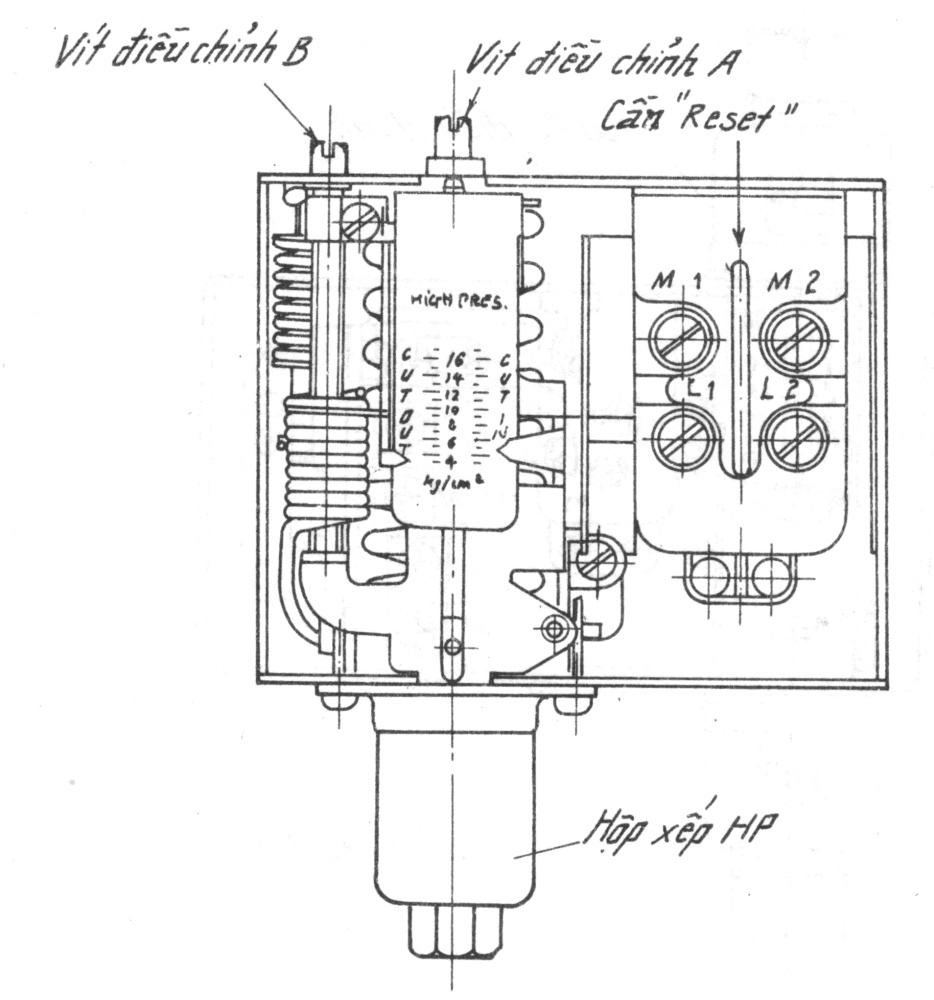 Vít điều chỉnh B
Vít điều chỉnh A
Cần "Reset"
HIGH PRES.
CUT OUT
16
14
12
10
8
6
4
CUT IN
kg/cm²
M1 M2
L1 L2
Hộp xếp HP